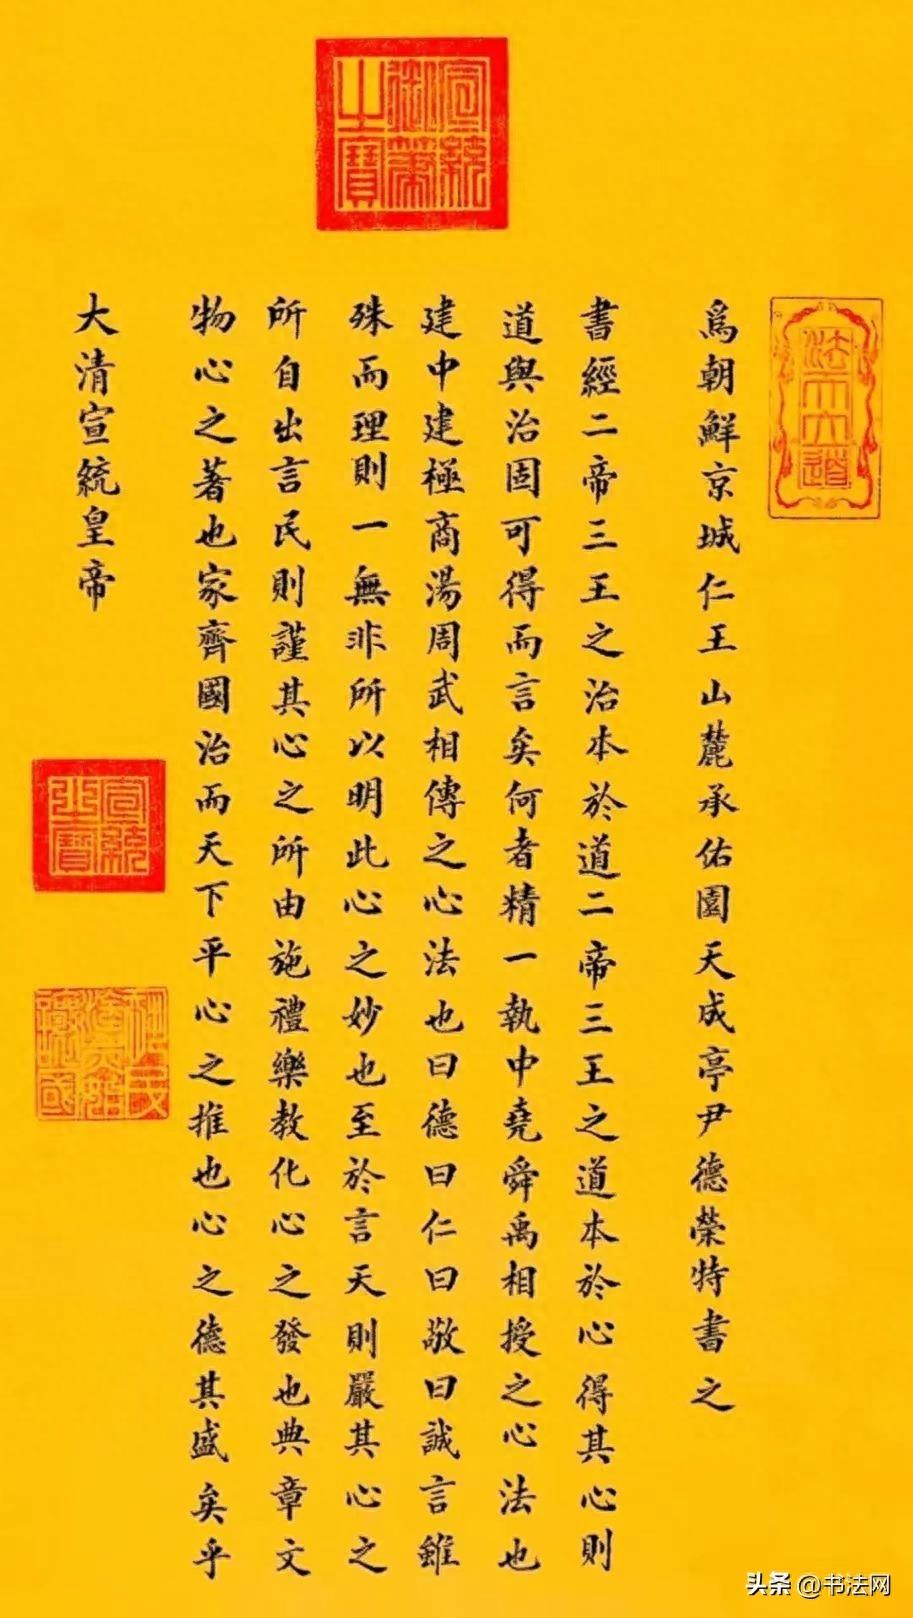 宣統御筆之寶
爲朝鮮京城仁王山麓承佑園天成亭尹德榮特書之
書經二帝三王之治本於道二帝三王之道本於心得其心則
道與治固可得而言矣何者精一執中堯舜禹相授之心法也
建中建極商湯周武相傳之心法也曰德曰仁曰敬曰誠言雖
殊而理則一無非所以明此心之妙也至於言天則嚴其心之
所自出言民則謹其心之所由施禮樂教化心之發也典章文
物心之著也家齊國治而天下平心之推也心之德其盛矣乎
大清宣統皇帝
宣統之寶
头条 @书法网